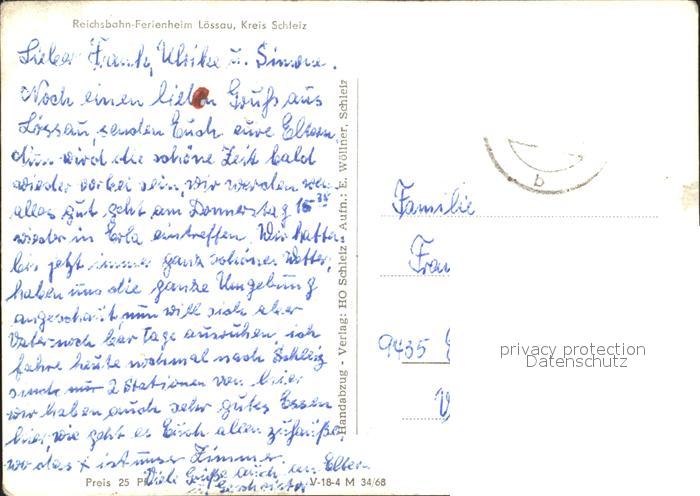 Reichsbahn-Ferienheim Lössau, Kreis Schleiz
Lieber Frank, Ulrike u. Simone.
Noch einen lieben Gruß aus
Lössau, senden Euch eure Eltern,
nun wird die schöne Zeit bald
wieder vorbei sein, wir werden wenn
alles gut geht am Donnerstag 15 38
wieder in Erla eintreffen. Wir hatten
bis jetzt immer ganz schönes Wetter,
haben uns die ganze Umgebung
angeschaut, nun will sich aber
Vater noch paar Tage ausruhen, ich
fahre heute nochmal nach Schleiz
sind nur 2 Stationen von hier
wir haben auch sehr gutes Essen
hier, wie geht es Euch allen zuhauße,
wo das x ist unser Zimmer.
Viele Grüße auch an Eltern
u. Geschwister
Preis 25 Pf
V-18-4 M 34/68
Handabzug - Verlag: HO Schleiz - Aufn.: E. Wöllner, Schleiz
b
Familie
Fran
9435
privacy protection
Datenschutz